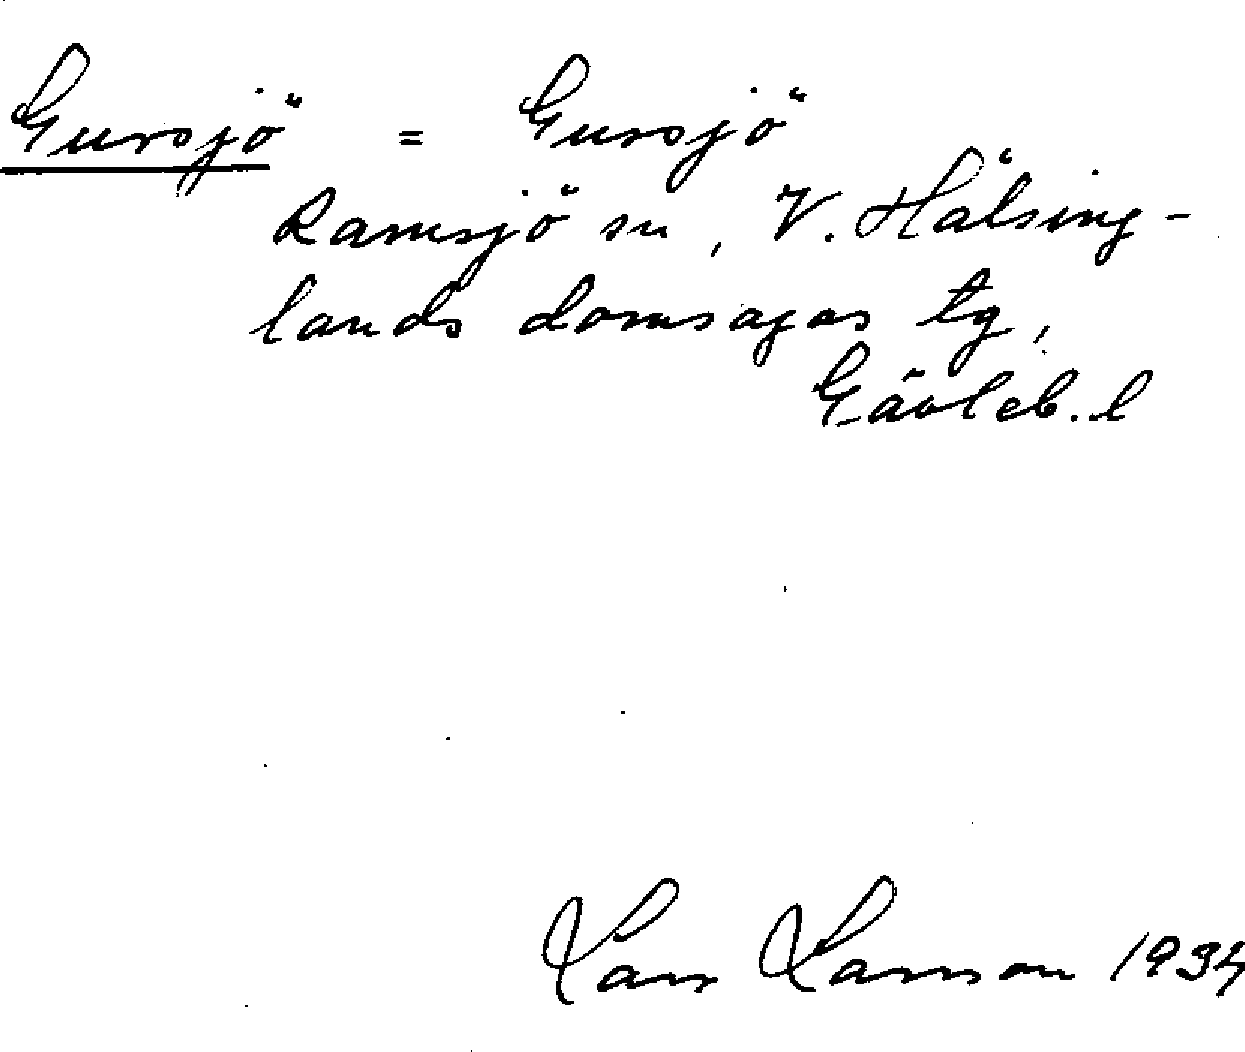 Gursjö = Gursjö
Ramsjö sn, V. Hälsing-
lands domsagas tg,
Gävleb. l
Lars Larsson 1934